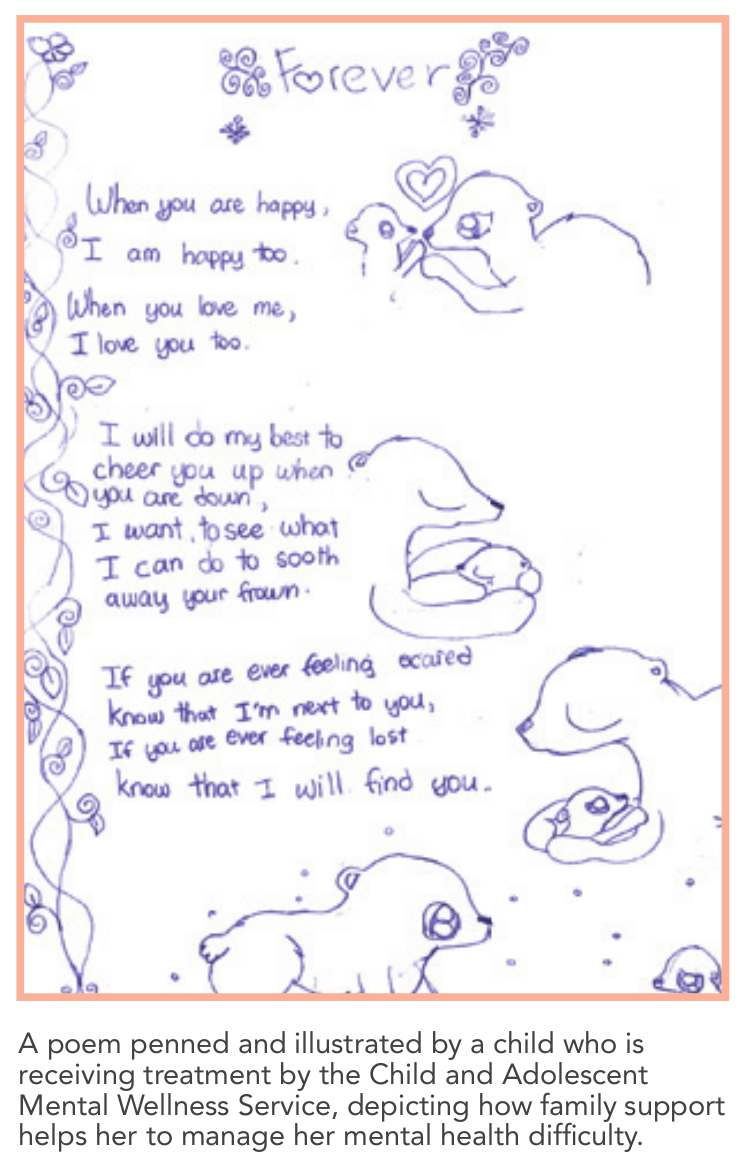 Forever
When you are happy,
I am happy too.
When you love me,
I love you too.
I will do my best to
cheer you up when
you are down,
I want to see what
I can do to sooth
away your frown.
If you are ever feeling scared
know that I'm next to you,
If you are ever feeling lost
know that I will find you.
A poem penned and illustrated by a child who is
receiving treatment by the Child and Adolescent
Mental Wellness Service, depicting how family support
helps her to manage her mental health difficulty.